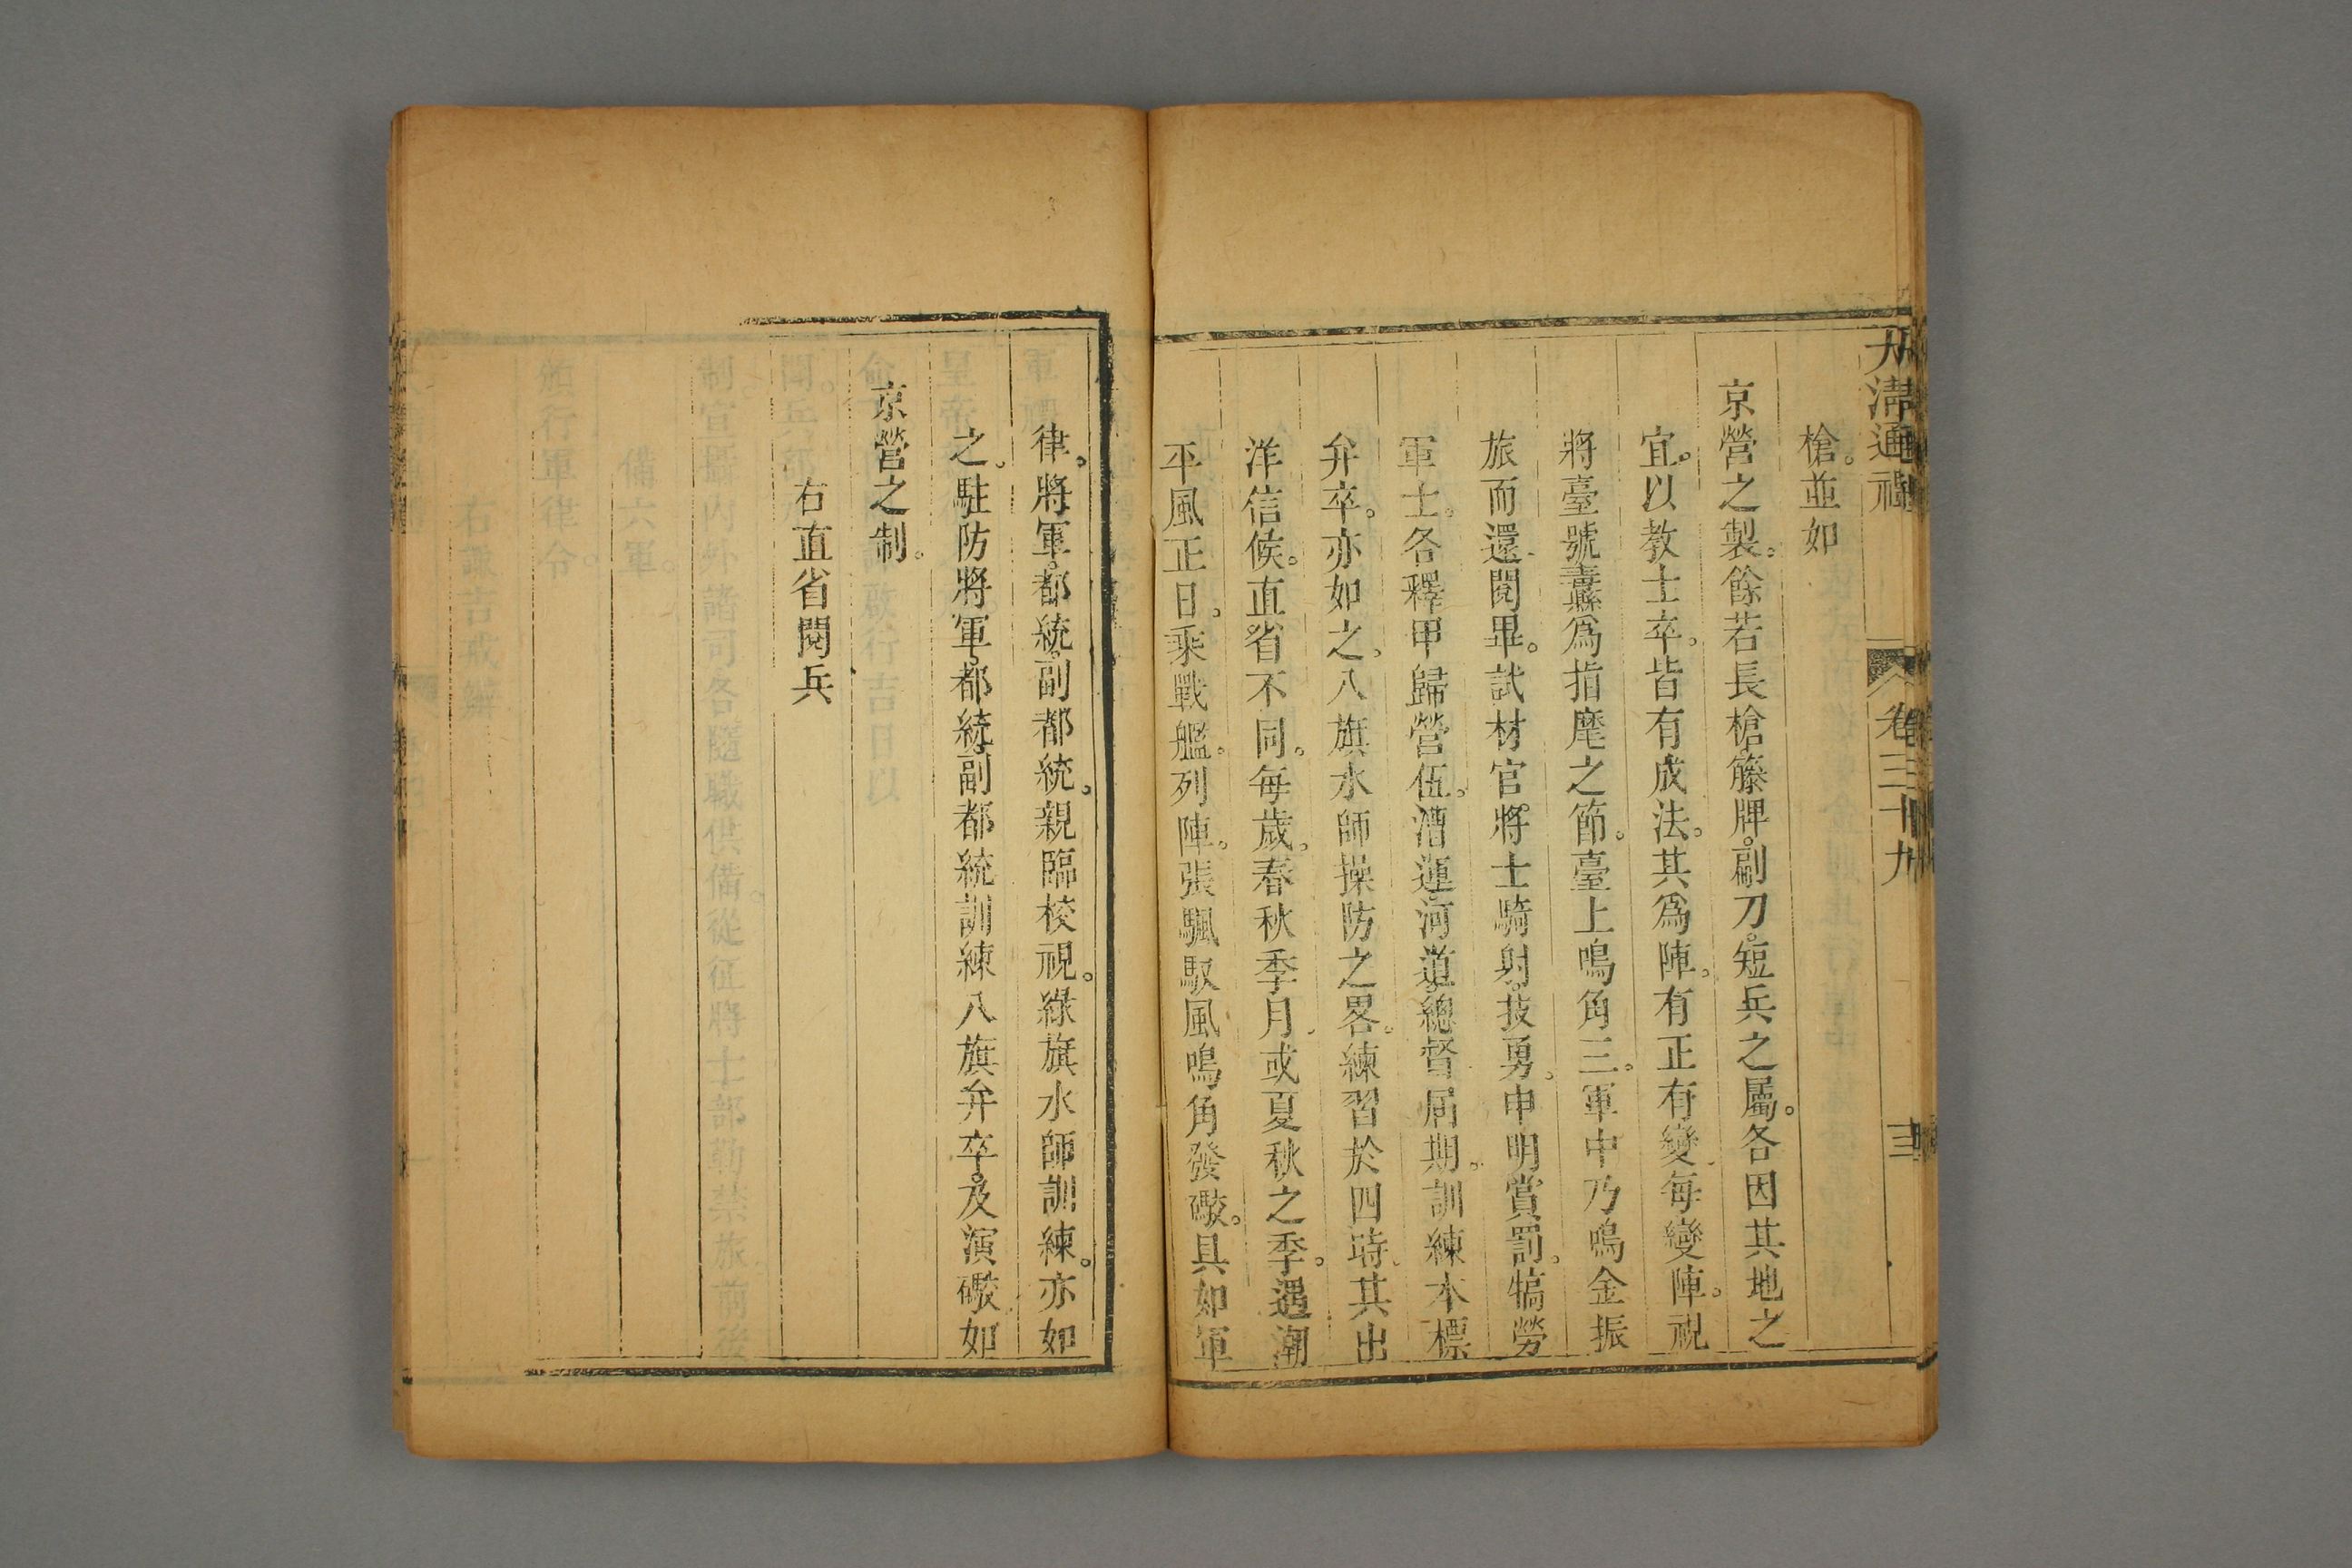 大清通禮 卷三十九 三
槍。並如
京營之製。餘若長槍籐牌。副刀。短兵之屬。各因其地之
宜。以教士卒。皆有成法。其為陣。有正有變。每變陣。視
將臺號纛為指麾之節。臺上鳴角三。軍中乃鳴金振
旅而還。閱畢。試材官將士騎射。技勇。申明賞罰。犒勞
軍士。各釋甲歸營伍。漕運河道。總督屆期。訓練本標
弁卒。亦如之。八旗水師操防之畧。練習於四時。其出
洋信候。直省不同。每歲。春秋季月。或夏秋之季。遇潮
平風正日。乘戰艦。列陣。張颿馭風鳴角發礮。具如軍
律。將軍。都統。副都統。親臨校視。綠旗水師訓練。亦如
之。駐防將軍。都統。副都統訓練八旗弁卒。及演礮。如
京營之制。
右直省閱兵